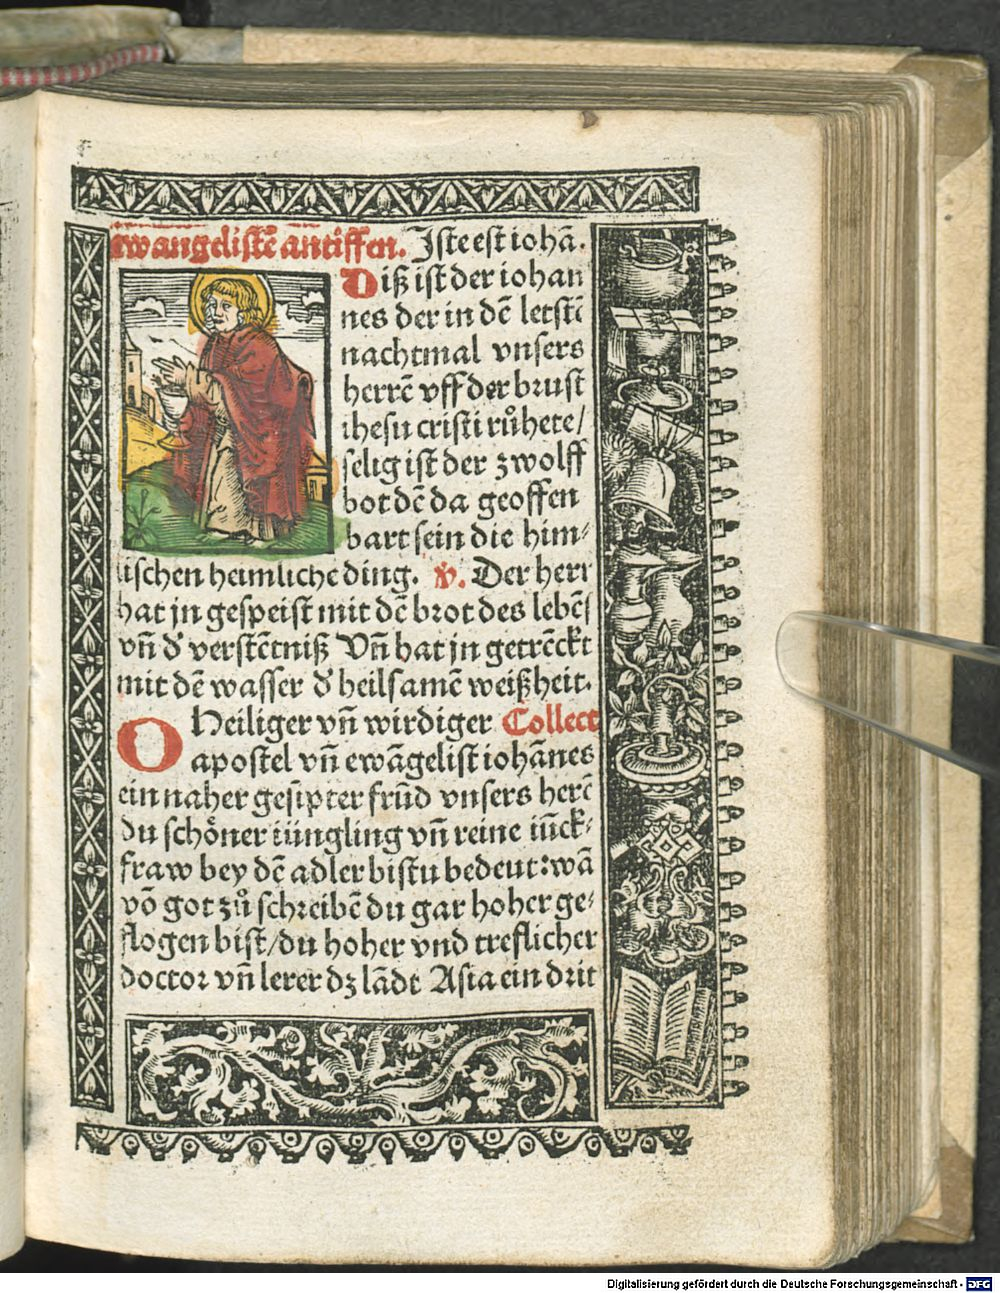 ewangelistē antiffen. Iste est iohā.
Diß ist der iohan
nes der in dē letstē
nachtmal vnsers
herrē vff der brust
ihesu cristi růhete/
selig ist der zwolff
bot dē da geoffen
bart sein die him⸗
lischen heimliche ding. ℣. Der herr
hat jn gespeist mit dē brot des lebēs
vñ d̕ verstētniß Vñ hat jn getrēckt
mit dē wasser d̕ heilsamē weißheit.
O Heiliger vñ wirdiger Collect
apostel vñ ewāgelist iohānes
ein naher gesipter frūd vnsers herē
du schöner iüngling vñ reine iūck⸗
fraw bey dē adler bistu bedeut: wā
vō got zů schreibē du gar hoher ge⸗
flogen bist/du hoher vnd treflicher
doctor vñ lerer dz lādt Asia ein drit
Digitalisierung gefördert durch die Deutsche Forschungsgemeinschaft - DFG